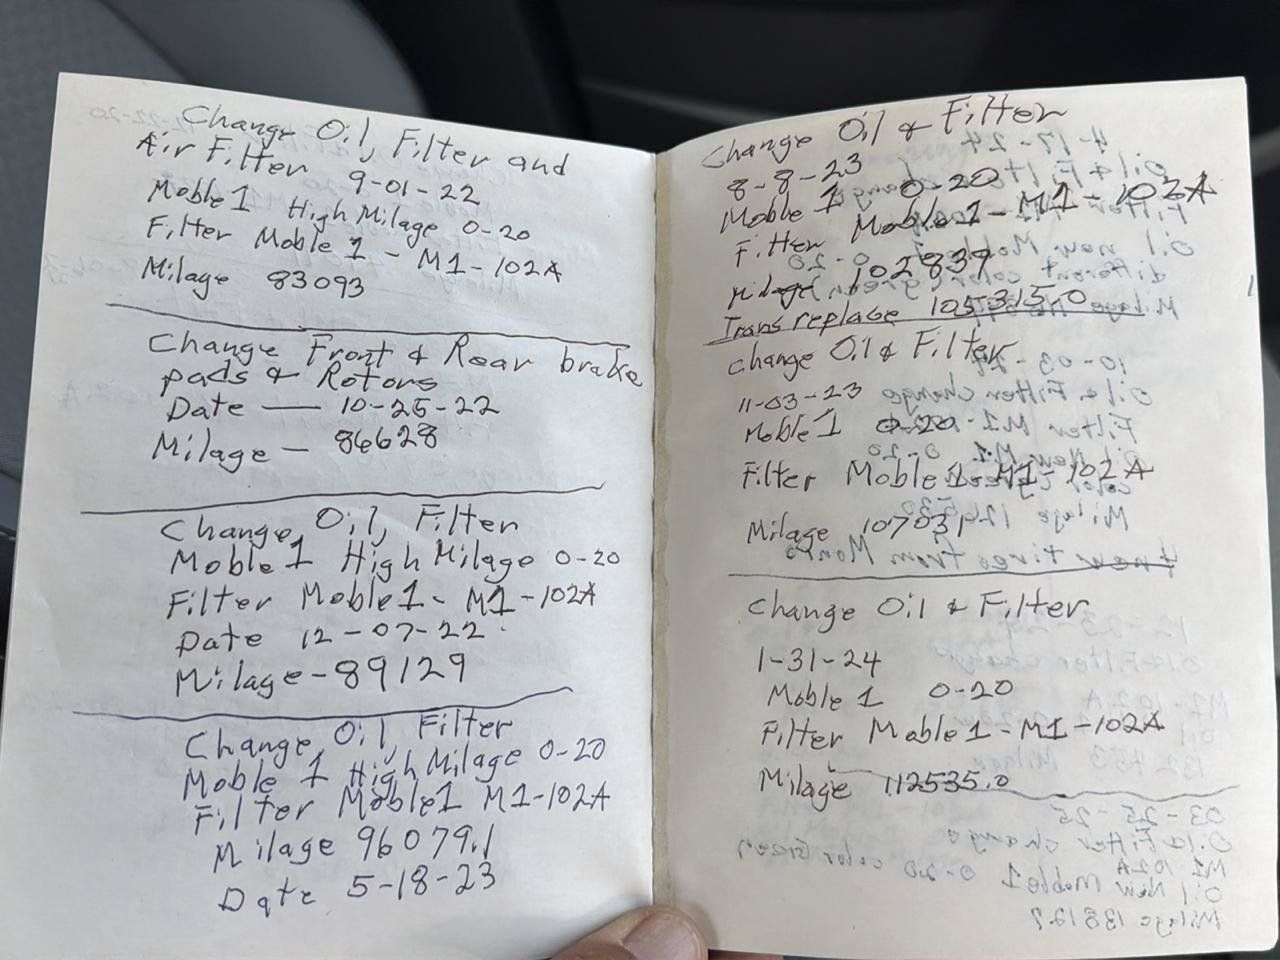 Change Oil, Filter and
Air Filter 9-01-22
Moble 1 High Milage 0-20
Filter Moble 1 - M1-102A
Milage 83093
Change Front & Rear brake
pads & Rotors
Date — 10-25-22
Milage — 86628
Change Oil, Filter
Moble 1 High Milage 0-20
Filter Moble 1 - M1-102A
Date 12-07-22
Milage - 89129
Change Oil, Filter
Moble 1 High Milage 0-20
Filter Moble 1 M1-102A
Milage 96079.1
Date 5-18-23
Change Oil & Filter
8-8-23
Moble 1 0-20
Filter Moble 1 - M1-102A
Milage 102839
Trans replace 105315.0
Change Oil & Filter
11-03-23
Moble 1 0-20
Filter Moble 1 - M1-102A
Milage 107031
Change Oil & Filter
1-31-24
Moble 1 0-20
Filter Moble 1 - M1-102A
Milage 112535.0